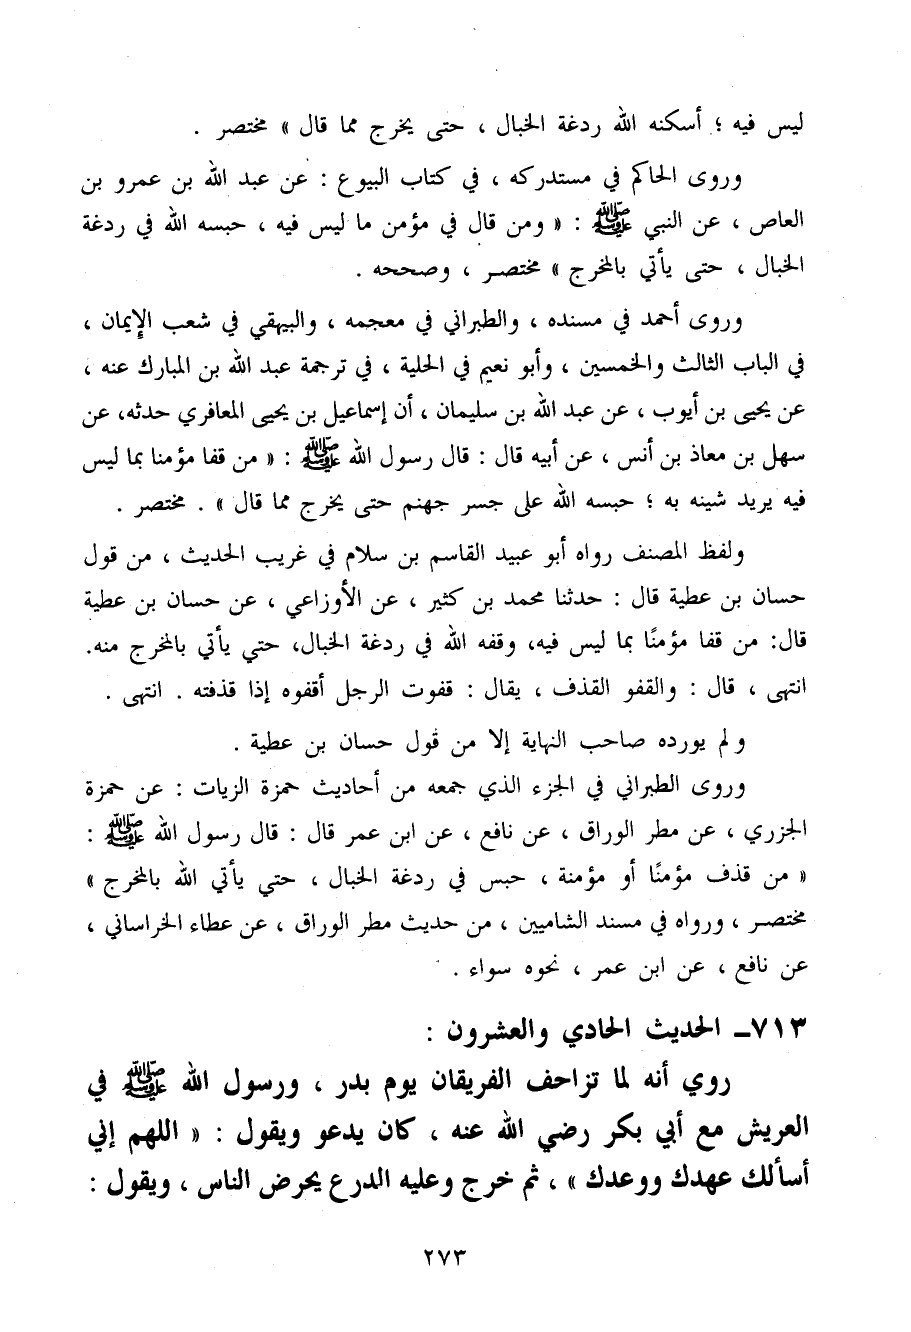 ليس فيه ؛ أسكنه الله ردغة الخبال ، حتى يخرج مما قال » مختصر .
وروى الحاكم في مستدركه ، في كتاب البيوع : عن عبد الله بن عمرو بن
العاص ، عن النبي ﷺ : « ومن قال في مؤمن ما ليس فيه ، حبسه الله في ردغة
الخبال ، حتى يأتي بالمخرج » مختصر ، وصححه .
وروى أحمد في مسنده ، والطبراني في معجمه ، والبيهقي في شعب الإيمان ،
في الباب الثالث والخمسين ، وأبو نعيم في الحلية ، في ترجمة عبد الله بن المبارك عنه ،
عن يحيى بن أيوب ، عن عبد الله بن سليمان ، أن إسماعيل بن يحيى المعافري حدثه، عن
سهل بن معاذ بن أنس ، عن أبيه قال : قال رسول الله ﷺ : « من قفا مؤمنا بما ليس
فيه يريد شينه به ؛ حبسه الله على جسر جهنم حتى يخرج مما قال » . مختصر .
ولفظ المصنف رواه أبو عبيد القاسم بن سلام في غريب الحديث ، من قول
حسان بن عطية قال : حدثنا محمد بن كثير ، عن الأوزاعي ، عن حسان بن عطية
قال: من قفا مؤمنًا بما ليس فيه، وقفه الله في ردغة الخبال، حتي يأتي بالمخرج منه.
انتهى ، قال : والقفو القذف ، يقال : قفوت الرجل أقفوه إذا قذفته . انتهى .
و لم يورده صاحب النهاية إلا من قول حسان بن عطية .
وروى الطبراني في الجزء الذي جمعه من أحاديث حمزة الزيات : عن حمزة
الجزري ، عن مطر الوراق ، عن نافع ، عن ابن عمر قال : قال رسول الله ﷺ :
« من قذف مؤمنًا أو مؤمنة ، حبس في ردغة الخبال ، حتي يأتي الله بالمخرج »
مختصر ، ورواه في مسند الشاميين ، من حديث مطر الوراق ، عن عطاء الخراساني ،
عن نافع ، عن ابن عمر ، نحوه سواء .
٧١٣ـ الحديث الحادي والعشرون :
روي أنه لما تزاحف الفريقان يوم بدر ، ورسول الله ﷺ في
العريش مع أبي بكر رضي الله عنه ، كان يدعو ويقول : « اللهم إني
أسألك عهدك ووعدك » ، ثم خرج وعليه الدرع يحرض الناس ، ويقول :
٢٧٣